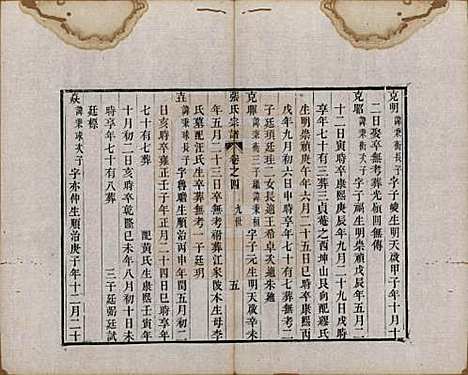 克明 諱秉衡長子 字子變生明天啟甲子年十月十
二日娶卒無考葬光楨同無傳
克耶 諱秉衡次子 字子嗣生明崇禎戊辰年五月二
十二日寅時卒康熙庚辰年九月十二十九日戌時
享年七十有三葬三貞菴之酉坤山艮向配繆氏
生明崇禎庚午年六月二十五日巳時卒康熙丙
戌年九月初六日申時享年七十有七葬無考二
子廷頊廷 二女長適王希卓次適朱 
克耀 諱秉衡三子繼諱秉極 字子元生明天啟辛未
張氏宗譜 卷之四 九世 五
年五月二十三日卒無考 葬江家 本生母李
氏墓配汪氏生卒葬無考一子廷玥
垚 諱秉球長子 字魯瞻生順治丙申年閏五月初二
日亥時卒雍正壬子年正月二十四日巳時享年
七十有七葬 配黃氏生康熙壬寅年
十月初二日亥時卒乾隆己未年五月初三日亥
時享年七十有八葬 三子廷試
廷標
焱 諱秉球次子 字亦仲生順治庚子年十二月二十